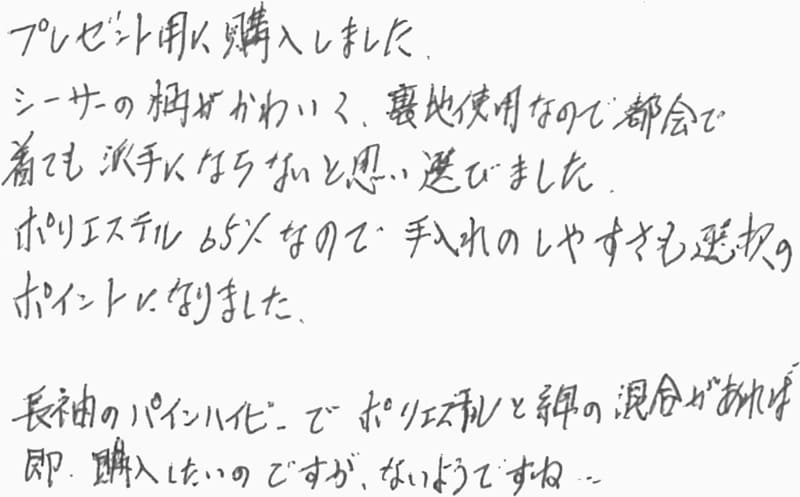 プレゼント用に購入しました.
シーサーの柄がかわいく、裏地使用なので都会で
着ても派手にならないと思い選びました.
ポリエステル65%なので手入れのしやすさも選択の
ポイントになりました.
長袖のパインハイビーでポリエステルと綿の混合があれば
即.購入したいのですが、ないようですね…